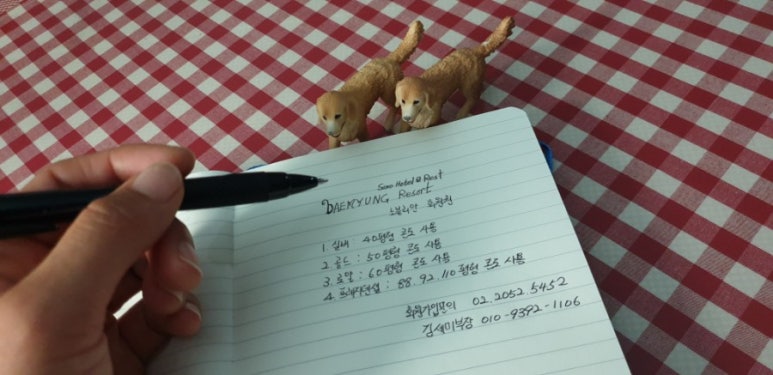 Sono Hotel & Resort
DAEMYUNG Resort
노블리안 회원권
1. 실버 : 40평형 콘도 사용
2. 골드 : 50평형 콘도 사용
3. 로얄 : 60평형 콘도 사용
4. 프레지덴셜 : 88.92.110평형 콘도 사용
회원가입문의 02.2052.5452
김세미부장 010-9392-1106